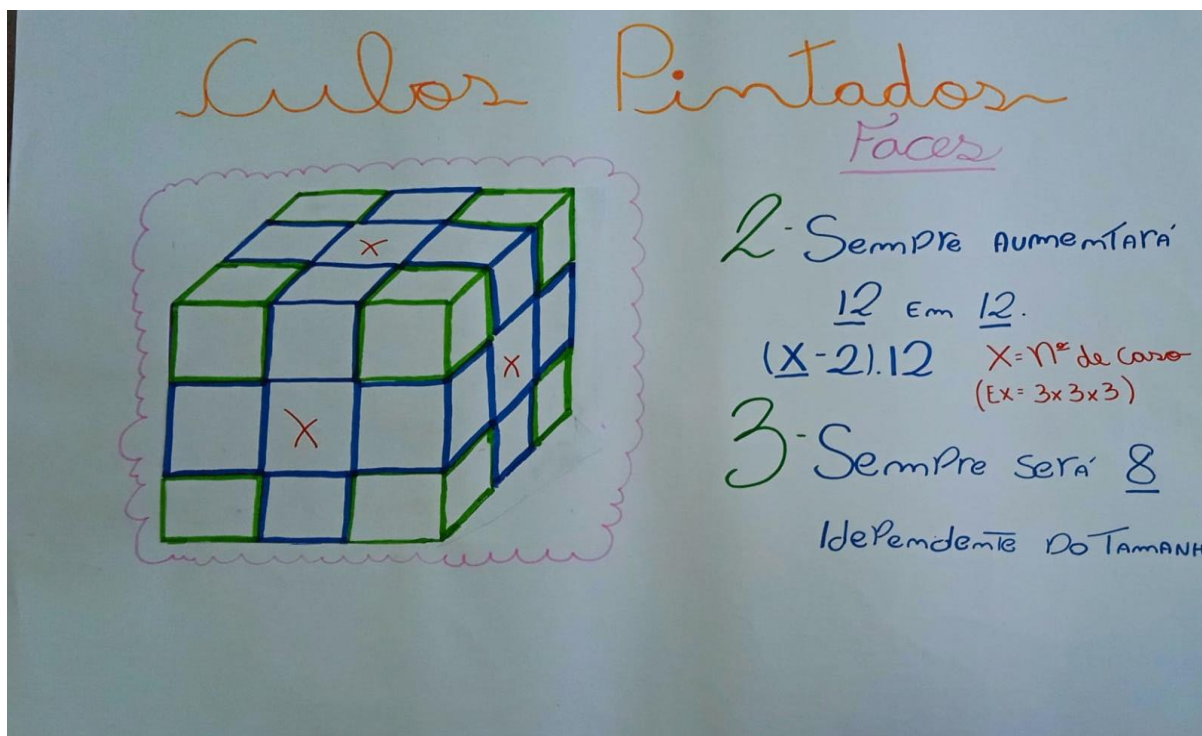 Cubos Pintados
Faces
X
X
X
2- Sempre aumentará
12 em 12.
(X-2).12 X = nº de caso
(Ex = 3x3x3)
3- Sempre será 8
Idependente do Tamanh